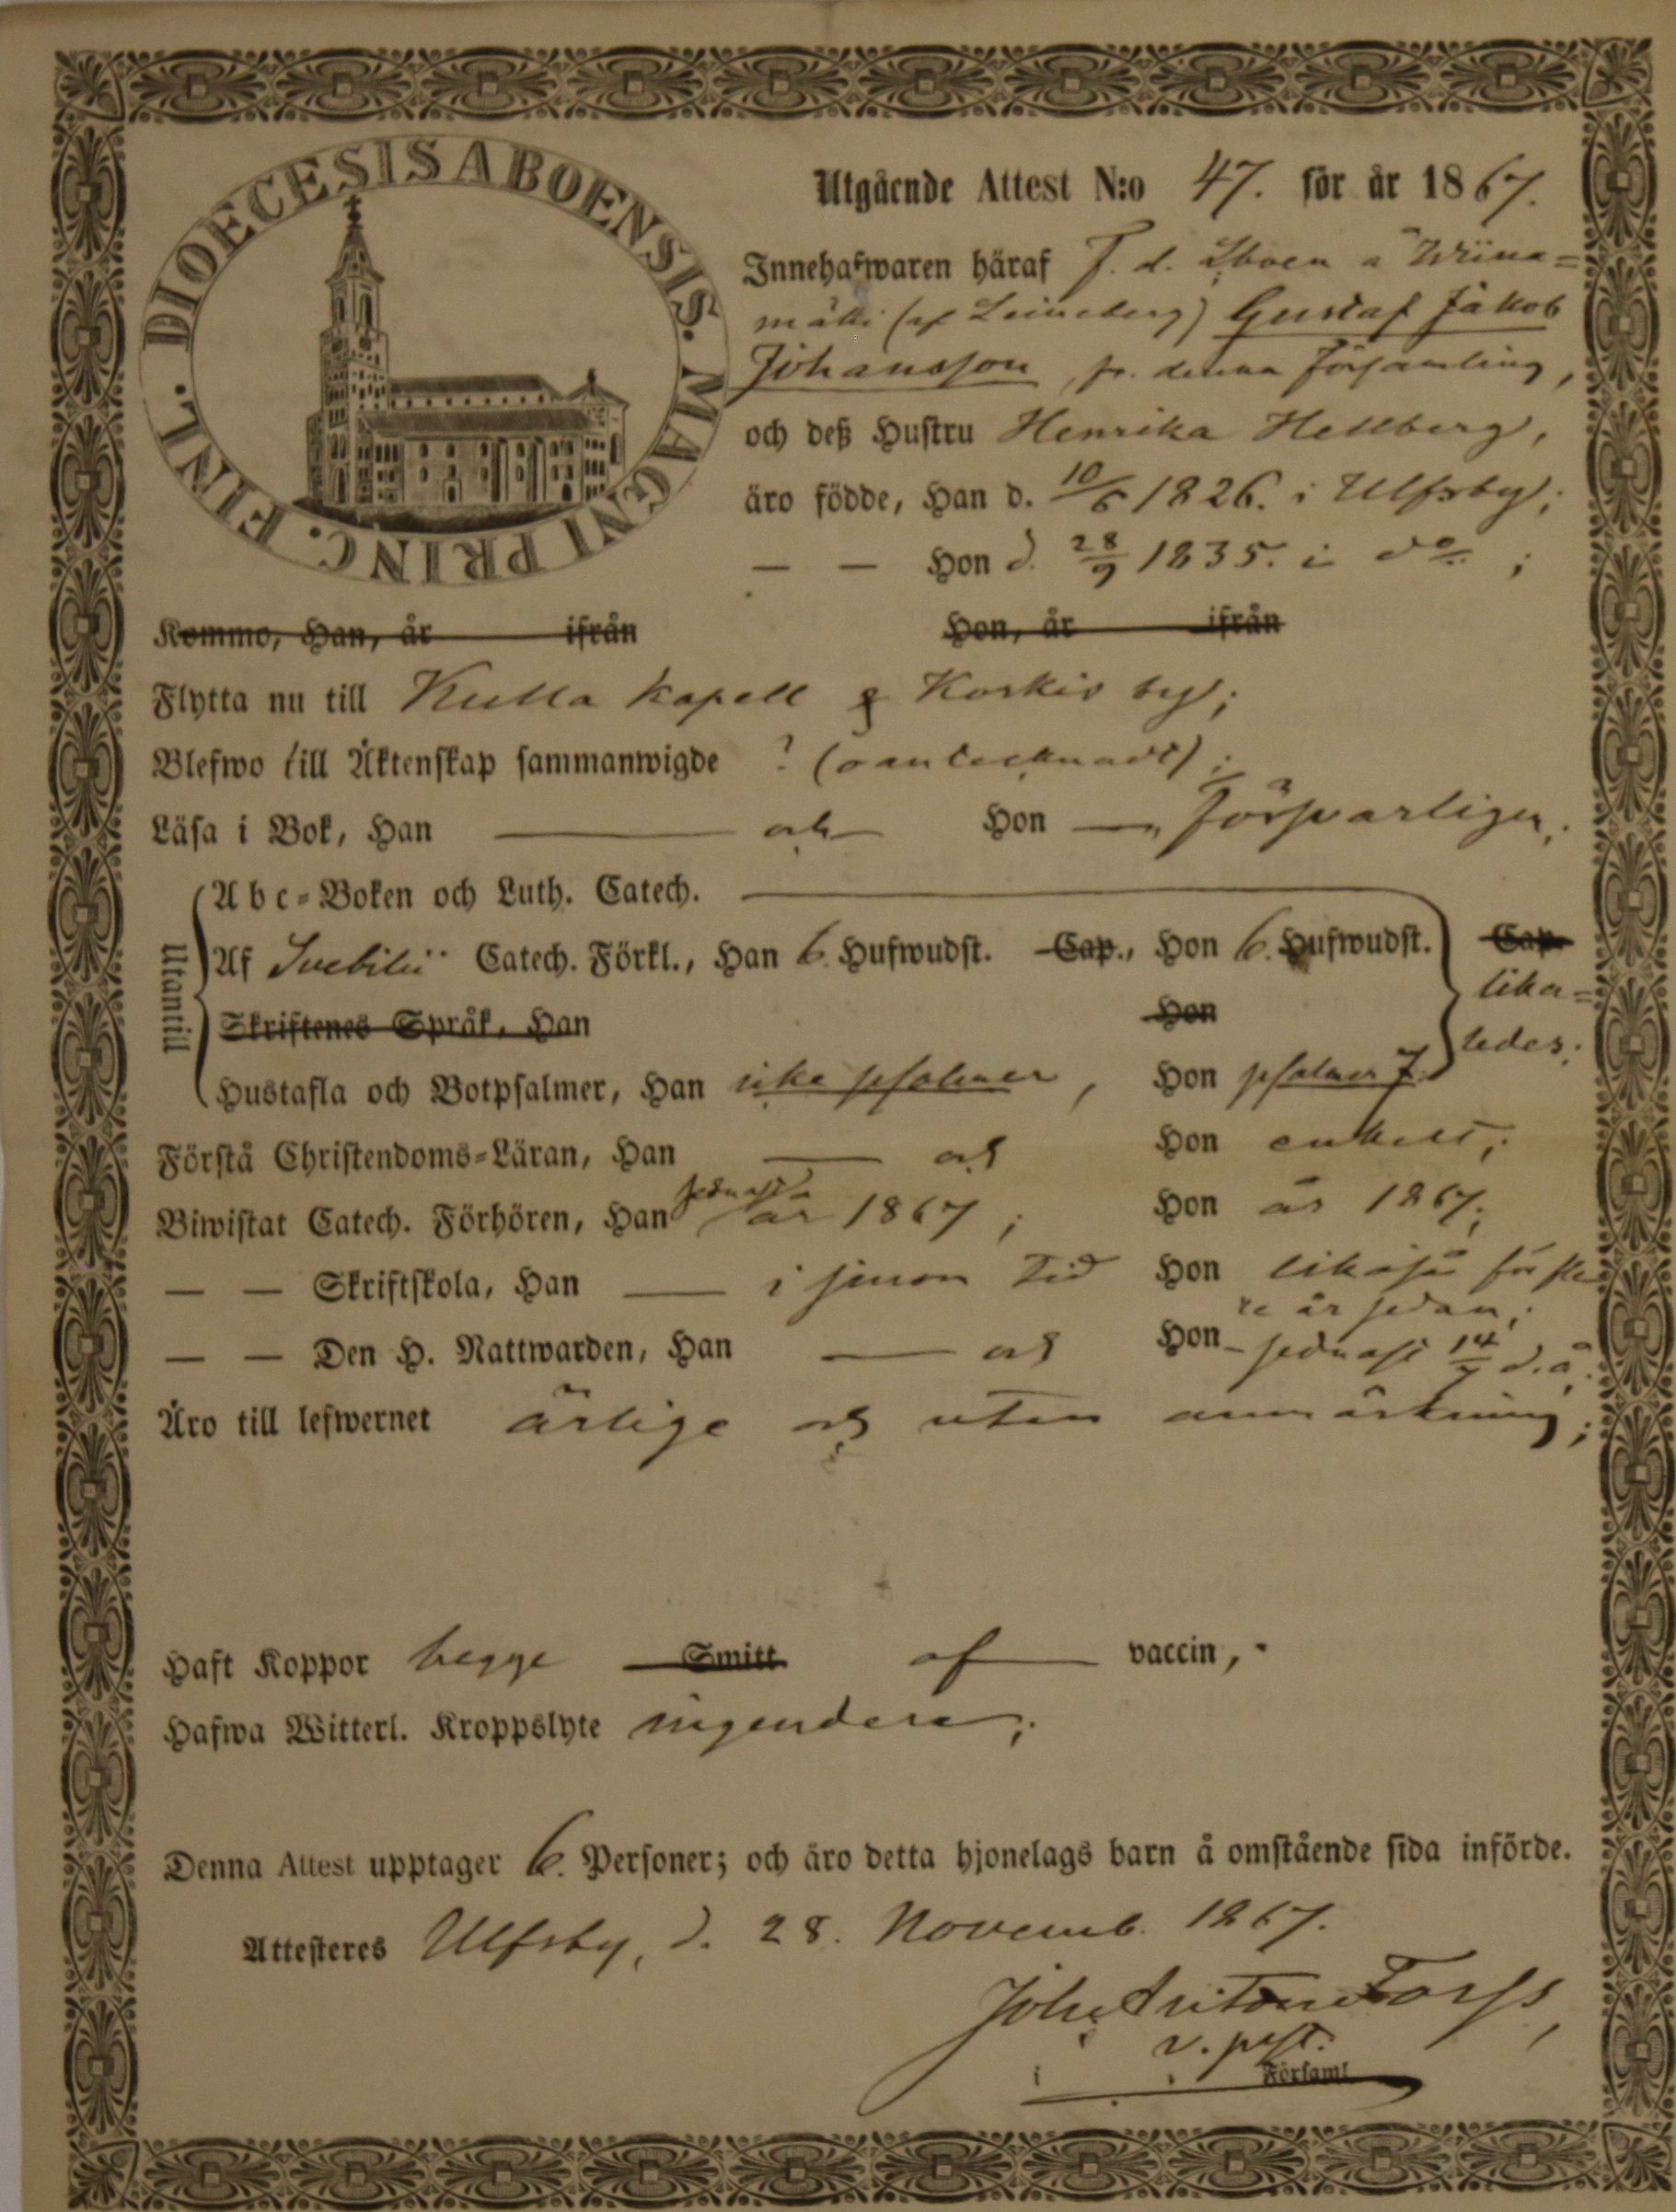 DIOECESIS ABOENSIS. MAGNI PRINC. FINL.
Utgående Attest N:o 47. för år 1867.
Innehafwaren häraf F. d. å Wiina=
mäki (af Leineberg) Gustaf Jakob
Johansson, fr. denna församling,
och deß Hustru Henrika Hellberg,
äro födde, Han d. 10/6 1826. i Ulfsby;
— — Hon d. 28/9 1835. i do ;
Kommo, Han, år ifrån Hon, år ifrån
Flytta nu till Kulla kapell & Koskis by;
Blefwo till Äktenskap sammanwigde ? (oantecknadt);
Läsa i Bok, Han — och Hon — försvarligen;
Utantill
Abc=Boken och Luth. Catech.
Af Svebilii Catech. Förkl., Han 6. Hufwudst. Cap., Hon 6. Hufwudst. Cap.
lika=
Skriftenes Språk, Han Hon
ledes;
Hustafla och Botpsalmer, Han icke psalmer, Hon psalmer 7.
Förstå Christendoms=Läran, Han — och Hon enkelt;
Biwistat Catech. Förhören, Han sednast år 1867; Hon år 1867;
— — Skriftskola, Han — i sinom tid Hon likaså för fle
re år sedan;
— — Den H. Nattwarden, Han — och Hon - sednast 14/7 d. å.
Äro till lefwernet ärlige och utan anmärkning;
Haft Koppor begge Smitt af vaccin,
Hafwa Witterl. Kroppslyte ingendera;
Denna Attest upptager 6. Personer; och äro detta hjonelags barn å omstående sida införde.
Attesteres Ulfsby, d. 28. Novemb. 1867.
Joh. Anton Forss,
v. past.
Församl.